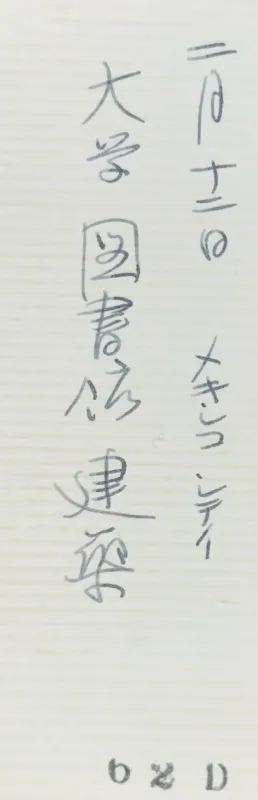 二月十二日 メキシコシティ
大学図書館建築